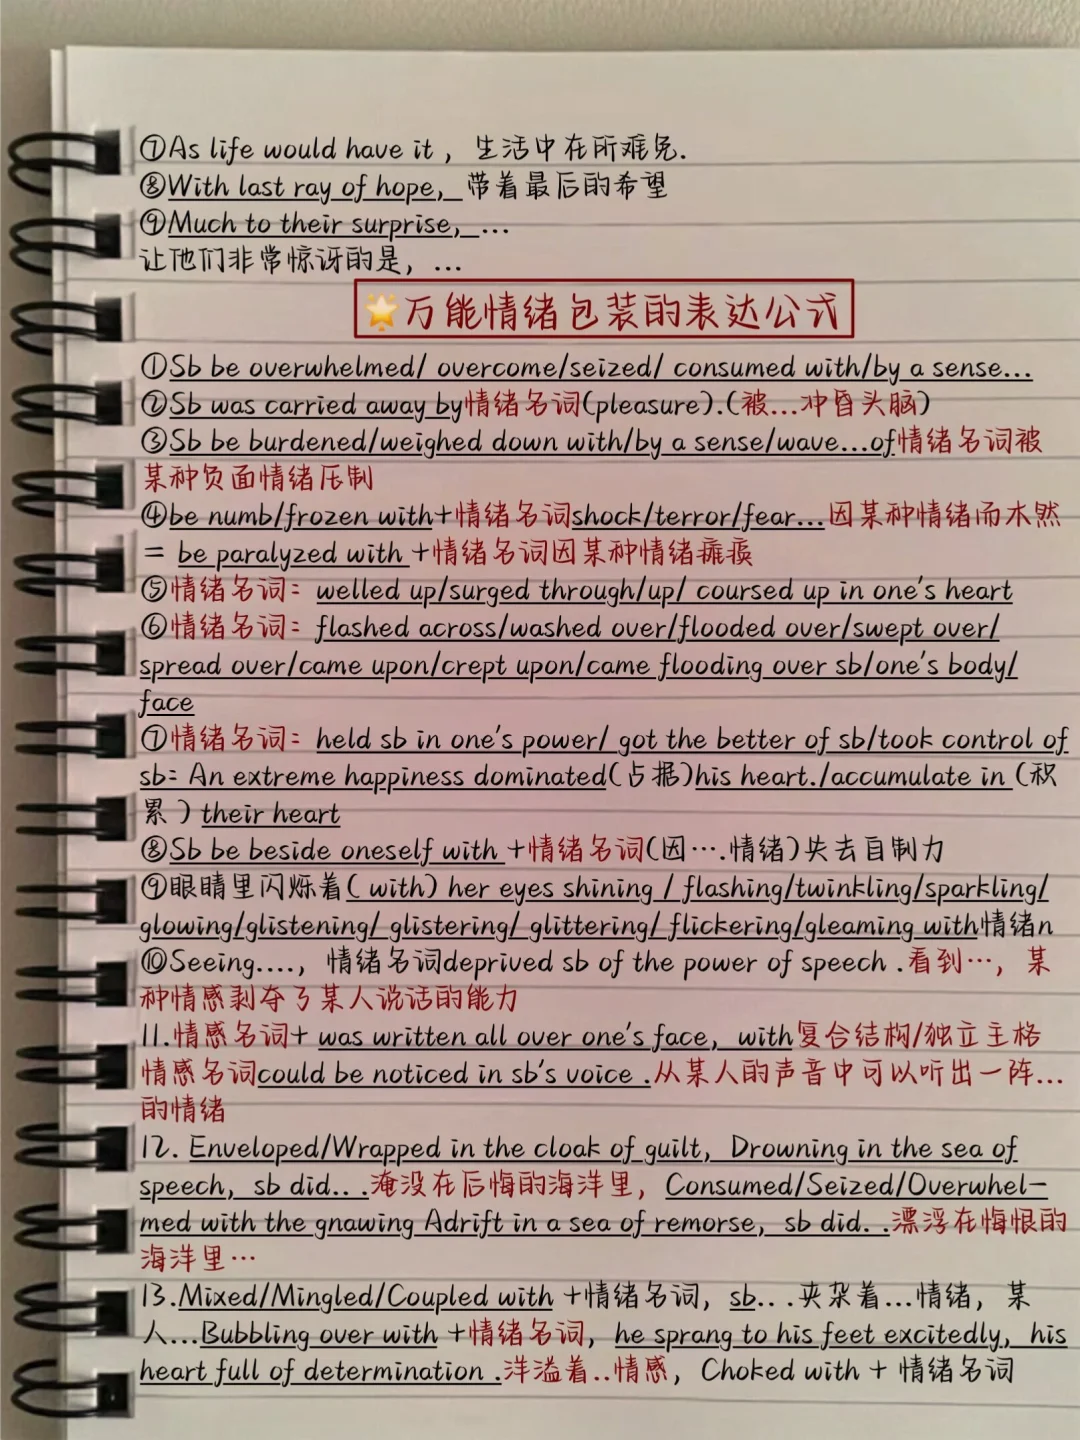 ⑦As life would have it ，生活中在所难免.
⑧With last ray of hope，带着最后的希望
⑨Much to their surprise，...
让他们非常惊讶的是，...
🌟万能情绪包装的表达公式
①Sb be overwhelmed/ overcome/seized/ consumed with/by a sense...
②Sb was carried away by情绪名词(pleasure).(被...冲昏头脑)
③Sb be burdened/weighed down with/by a sense/wave...of情绪名词被
某种负面情绪压制
④be numb/frozen with+情绪名词shock/terror/fear...因某种情绪而木然
= be paralyzed with +情绪名词因某种情绪瘫痪
⑤情绪名词：welled up/surged through/up/ coursed up in one's heart
⑥情绪名词：flashed across/washed over/flooded over/swept over/
spread over/came upon/crept upon/came flooding over sb/one's body/
face
⑦情绪名词：held sb in one's power/ got the better of sb/took control of
sb: An extreme happiness dominated(占据)his heart./accumulate in (积
累 ) their heart
⑧Sb be beside oneself with +情绪名词(因….情绪)失去自制力
⑨眼睛里闪烁着( with) her eyes shining / flashing/twinkling/sparkling/
glowing/glistening/ glistering/ glittering/ flickering/gleaming with情绪n
⑩Seeing....，情绪名词deprived sb of the power of speech .看到…，某
种情感剥夺了某人说话的能力
11.情感名词+ was written all over one's face，with复合结构/独立主格
情感名词could be noticed in sb's voice .从某人的声音中可以听出一阵...
的情绪
12. Enveloped/Wrapped in the cloak of guilt，Drowning in the sea of
speech，sb did.. .淹没在后悔的海洋里，Consumed/Seized/Overwhel-
med with the gnawing Adrift in a sea of remorse，sb did. .漂浮在悔恨的
海洋里…
13.Mixed/Mingled/Coupled with +情绪名词，sb.. .夹杂着...情绪，某
人...Bubbling over with +情绪名词，he sprang to his feet excitedly，his
heart full of determination .洋溢着..情感，Choked with + 情绪名词